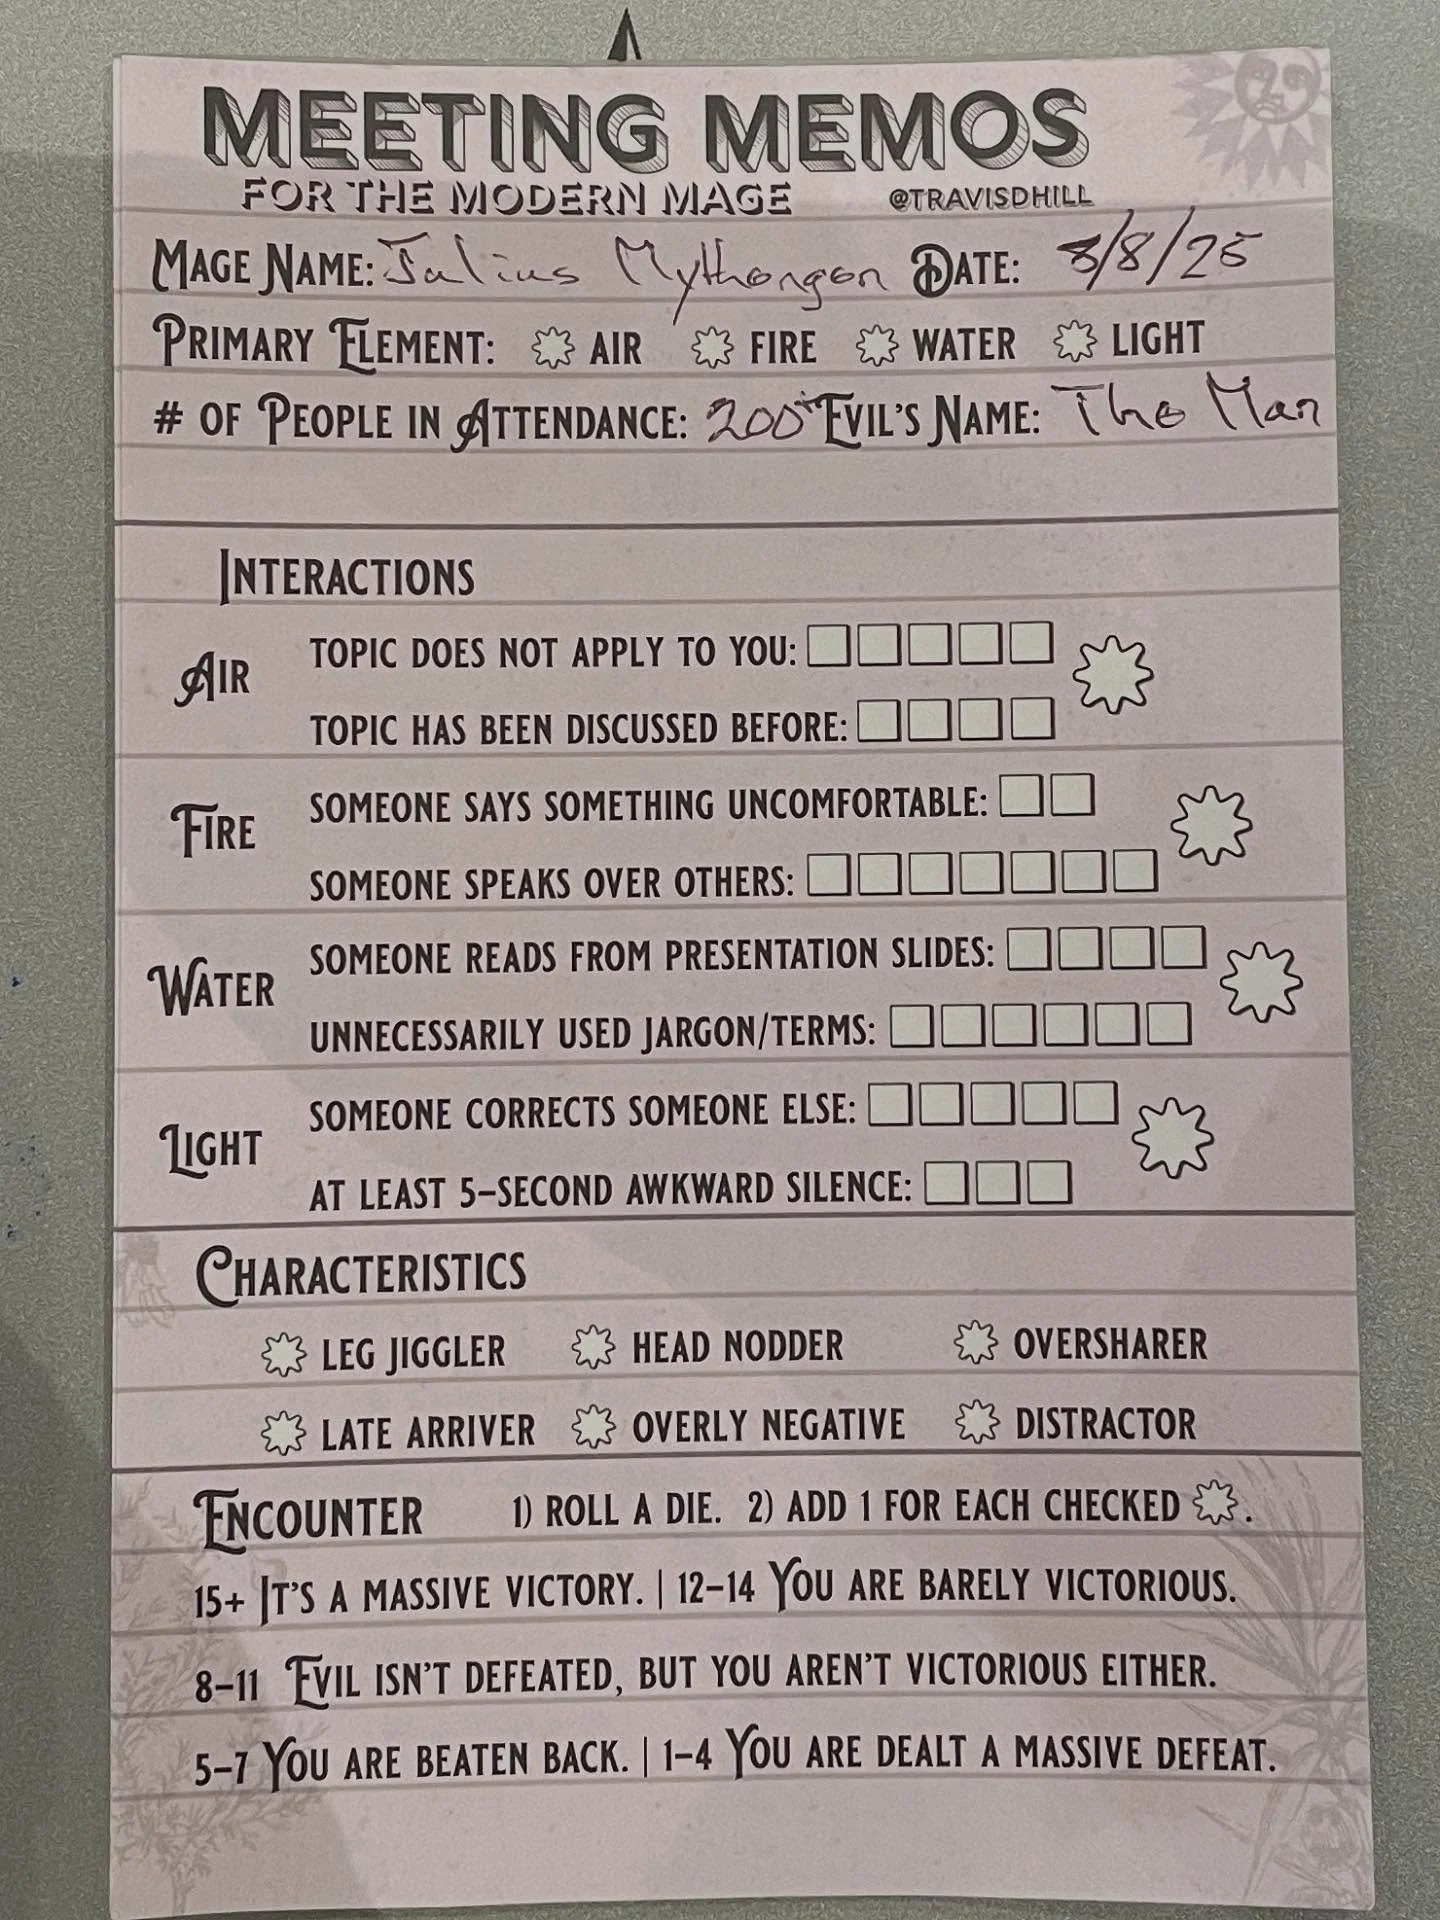 MEETING MEMOS
FOR THE MODERN MAGE @TRAVISDHILL
MAGE NAME: Julius Mythongon DATE: 3/8/25
PRIMARY ELEMENT: AIR FIRE WATER LIGHT
# OF PEOPLE IN ATTENDANCE: 200+ EVIL'S NAME: The Man
INTERACTIONS
AIR
TOPIC DOES NOT APPLY TO YOU:
TOPIC HAS BEEN DISCUSSED BEFORE:
FIRE
SOMEONE SAYS SOMETHING UNCOMFORTABLE:
SOMEONE SPEAKS OVER OTHERS:
WATER
SOMEONE READS FROM PRESENTATION SLIDES:
UNNECESSARILY USED JARGON/TERMS:
LIGHT
SOMEONE CORRECTS SOMEONE ELSE:
AT LEAST 5-SECOND AWKWARD SILENCE:
CHARACTERISTICS
LEG JIGGLER HEAD NODDER OVERSHARER
LATE ARRIVER OVERLY NEGATIVE DISTRACTOR
ENCOUNTER 1) ROLL A DIE. 2) ADD 1 FOR EACH CHECKED .
15+ IT'S A MASSIVE VICTORY. | 12-14 YOU ARE BARELY VICTORIOUS.
8-11 EVIL ISN'T DEFEATED, BUT YOU AREN'T VICTORIOUS EITHER.
5-7 YOU ARE BEATEN BACK. | 1-4 YOU ARE DEALT A MASSIVE DEFEAT.